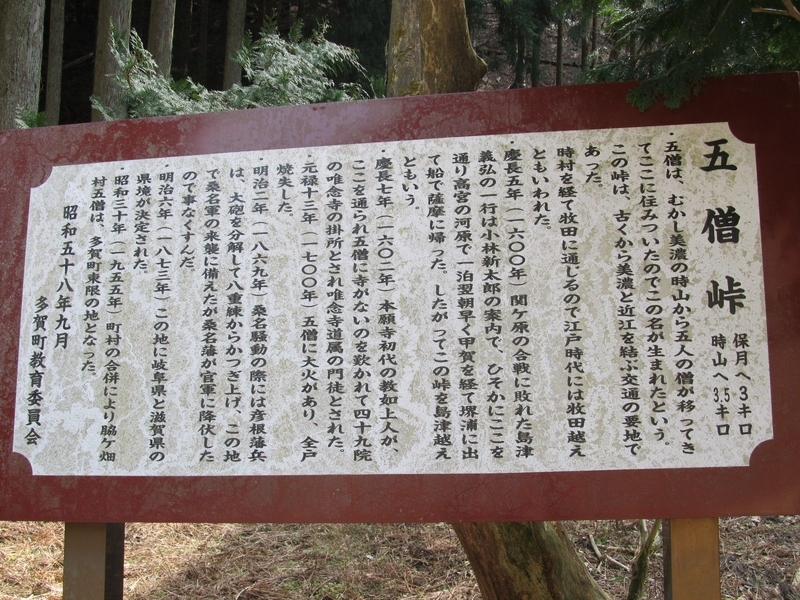 五僧峠
保月へ3キロ
時山へ3.5キロ
・五僧は、むかし美濃の時山から五人の僧が移ってき
てここに住みついたのでこの名が生まれたという。
この峠は、古くから美濃と近江を結ぶ交通の要地で
あった。
時村を経て牧田に通じるので江戸時代には牧田越え
ともいわれた。
・慶長五年（一六〇〇年）関ケ原の合戦に敗れた島津
義弘の一行は小林新太郎の案内で、ひそかにここを
通り高宮の河原で一泊翌朝早く甲賀を経て堺浦に出
て船で薩摩に帰った。したがってこの峠を島津越え
ともいう。
・慶長七年（一六〇二年）本願寺初代の教如上人が、
ここを通られ五僧に寺がないのを歎かれて四十九院
の唯念寺の掛所とされ唯念寺道属の門徒とされた。
・元禄十三年（一七〇〇年）五僧に大火があり、全戸
焼失した。
・明治二年（一八六九年）桑名騒動の際には彦根藩兵
は、大砲を分解して八重練からかつぎ上げ、この地
で桑名軍の来襲に備えたが桑名藩が官軍に降伏した
ので事なくすんだ。
・明治六年（一八七三年）この地に岐阜県と滋賀県の
県境が決定された。
・昭和三十年（一九五五年）町村の合併により脇ケ畑
村五僧は、多賀町東限の地となった。
昭和五十八年九月
多賀町教育委員会